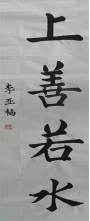 上善若水
李亚楠